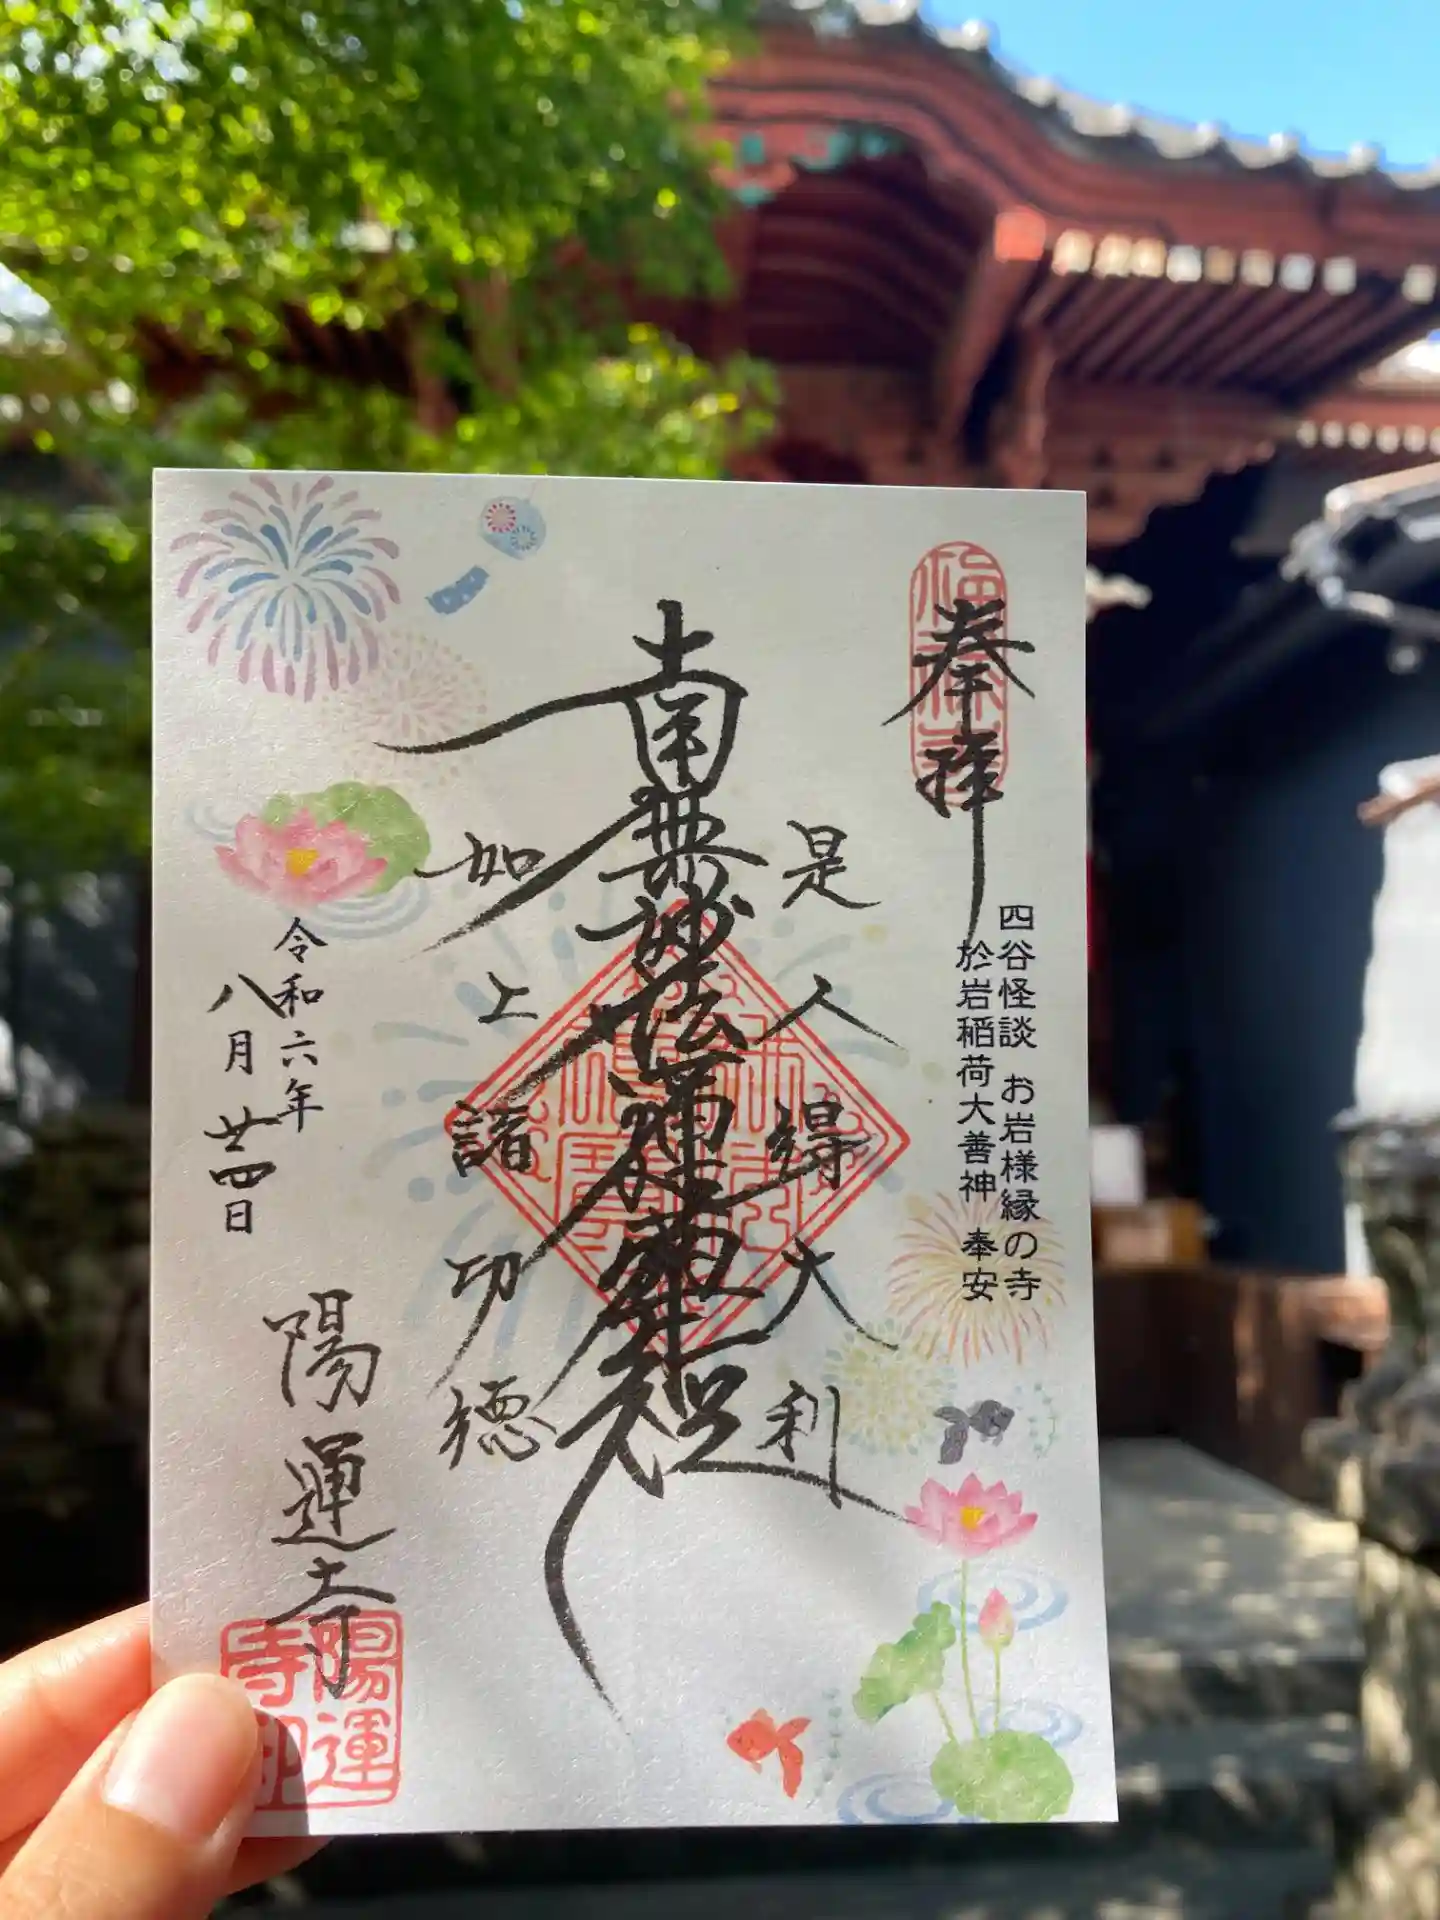 奉拝
四谷怪談 お岩様縁の寺
於岩稲荷大善神 奉安
是人得大利
南無妙法蓮華経
如上諸功徳
令和六年
八月廿四日
陽運寺
陽運寺印